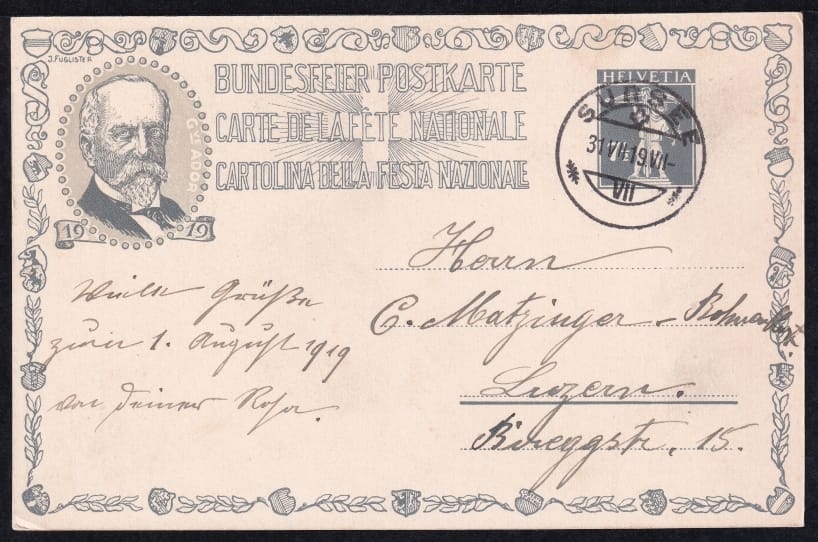 J. FUGLISTER
BUNDESFEIER POSTKARTE
CARTE DE LA FÊTE NATIONALE
CARTOLINA DELLA FESTA NAZIONALE
GVE ADOR
1919
HELVETIA
SURSEE
31 VII 19 VII-
VII
Herrn
C. Matzinger -
Luzern.
Bireggstr. 15.
Grüße
zum 1. August 1919
von deiner Rosa.